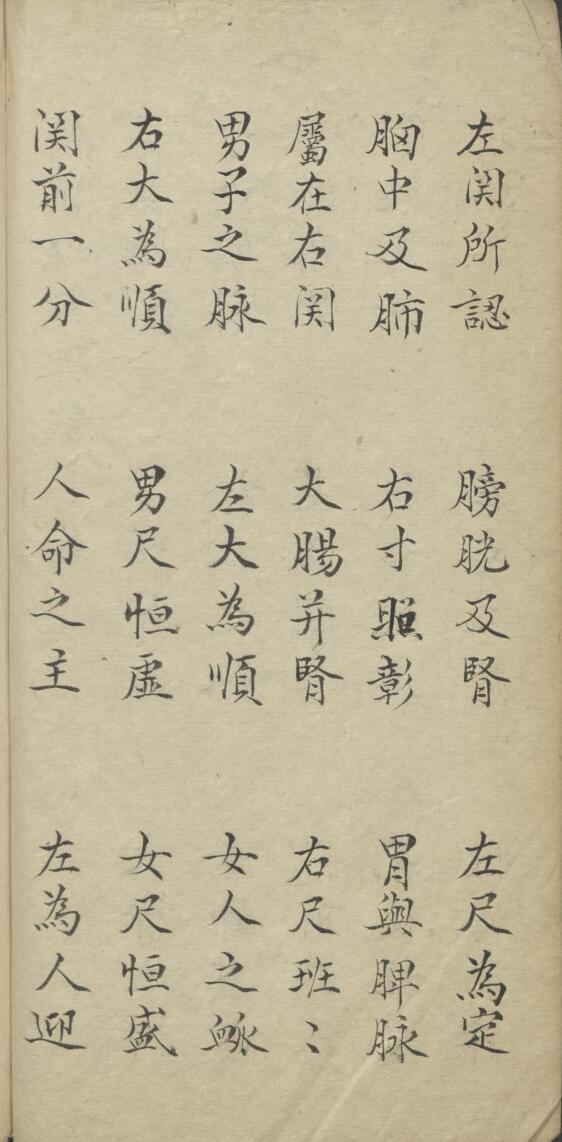 左関所認　膀胱及腎　左尺為定
胸中及肺　右寸昭彰　胃與脾脉
屬在右関　大腸并腎　右尺班〻
男子之脉　左大為順　女人之衇
右大為順　男尺恒虛　女尺恒盛
関前一分　人命之主　左為人迎